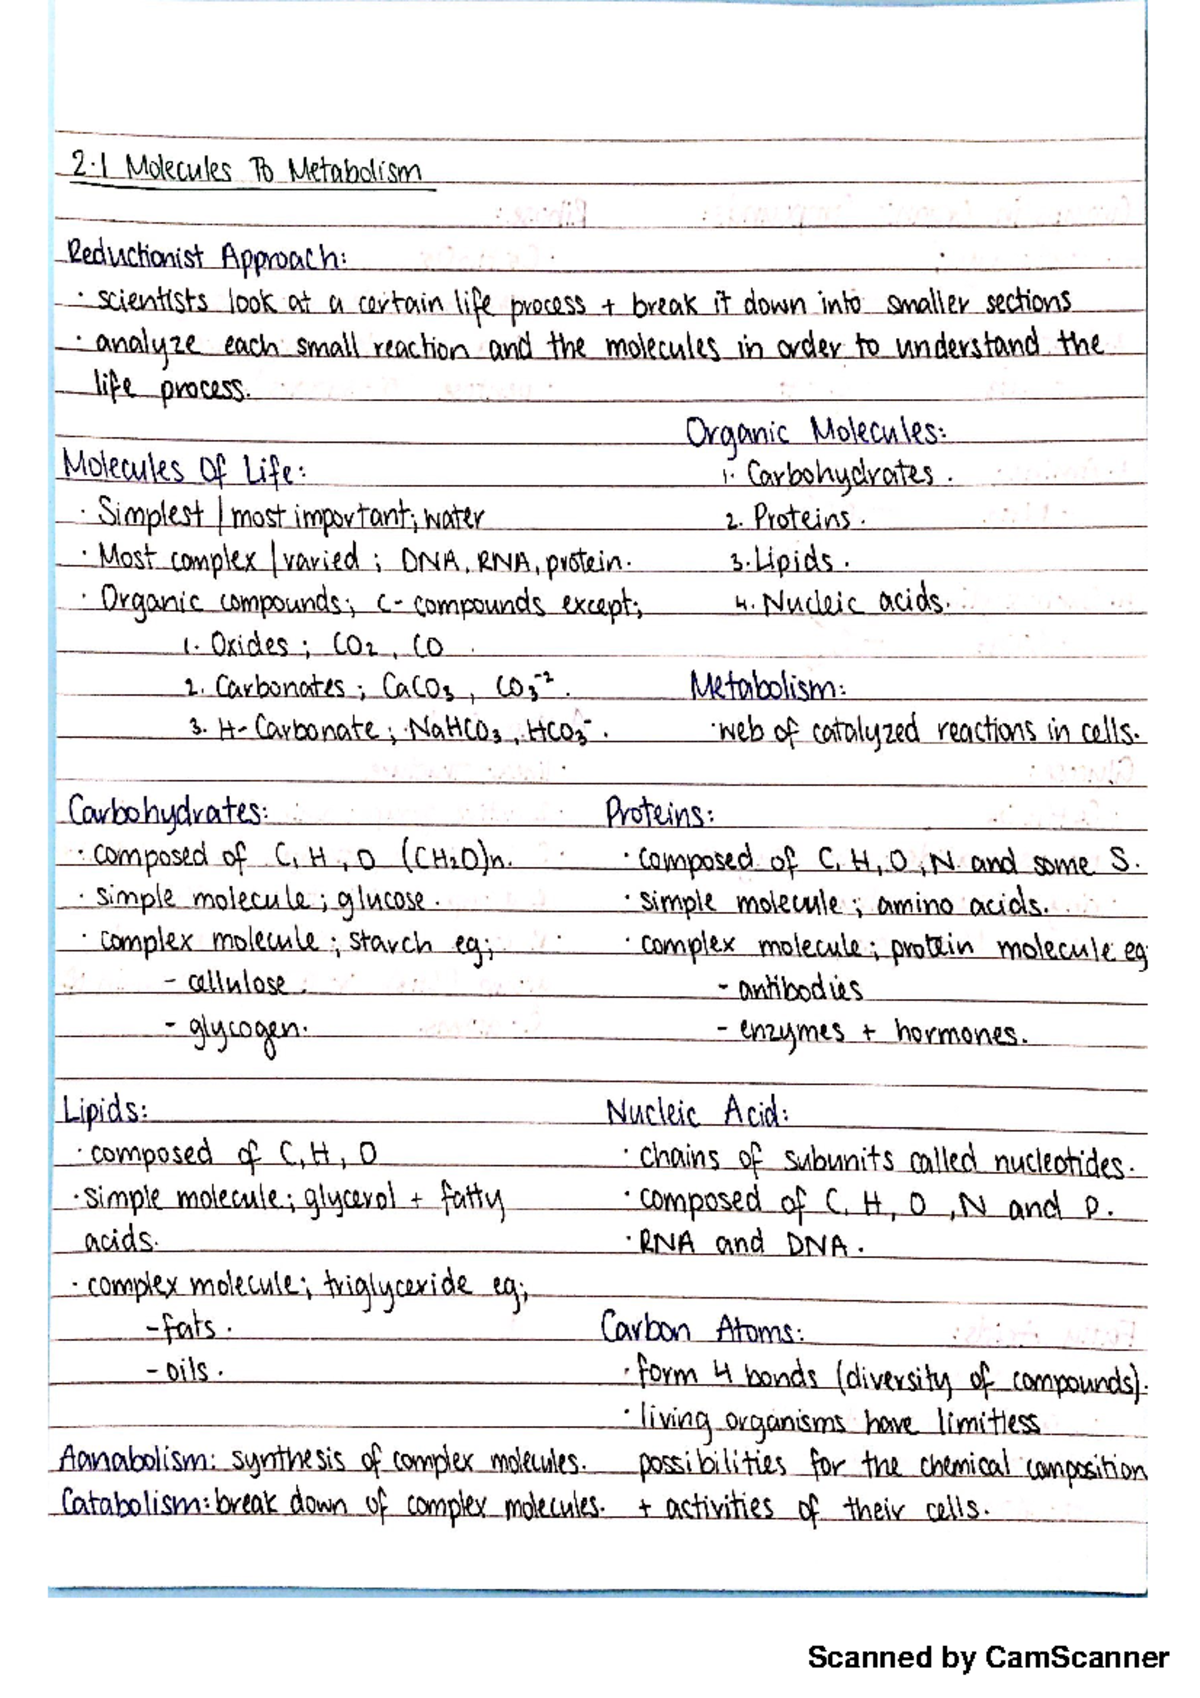 2.1 Molecules To Metabolism
Reductionist Approach:
· scientists look at a certain life process + break it down into smaller sections
· analyze each small reaction and the molecules in order to understand the
life process.
Molecules Of Life:
· Simplest / most important; water
· Most complex / varied ; DNA, RNA, protein.
· Organic compounds; C-compounds except;
1. Oxides ; CO2, CO.
2. Carbonates ; CaCO3, CO3⁻².
3. H-Carbonate ; NaHCO3, HCO3⁻.
Organic Molecules:
1. Carbohydrates.
2. Proteins.
3. Lipids.
4. Nucleic acids.
Metabolism:
· web of catalyzed reactions in cells.
Carbohydrates:
· composed of C, H, O (CH2O)n.
· simple molecule; glucose.
· complex molecule; starch eg;
- cellulose.
- glycogen.
Proteins:
· composed of C, H, O, N and some S.
· simple molecule; amino acids.
· complex molecule; protein molecule eg
- antibodies
- enzymes + hormones.
Lipids:
· composed of C, H, O
· simple molecule; glycerol + fatty
acids.
· complex molecule; triglyceride eg;
- fats.
- oils.
Nucleic Acid:
· chains of subunits called nucleotides.
· composed of C, H, O, N and P.
· RNA and DNA.
Carbon Atoms:
· form 4 bonds (diversity of compounds).
· living organisms have limitless
possibilities for the chemical composition
+ activities of their cells.
Aanabolism: synthesis of complex molecules.
Catabolism: break down of complex molecules.
Scanned by CamScanner